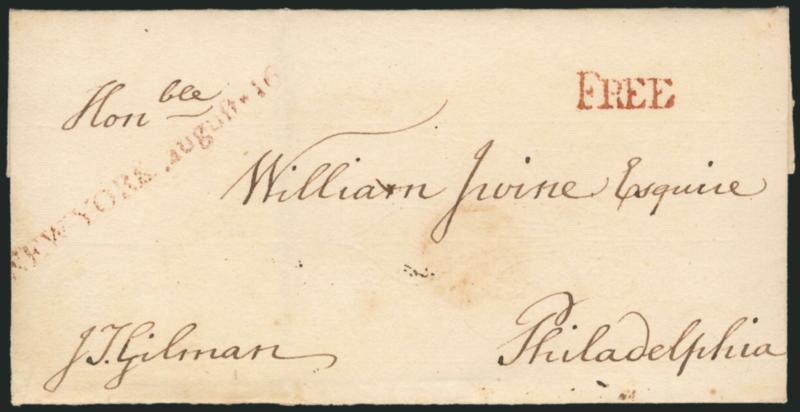 Honble
FREE
NEW-YORK, august 16
William Irvine Esquire
J.T. Gilman
Philadelphia